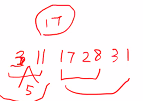 17
3 11 17 28 31
5